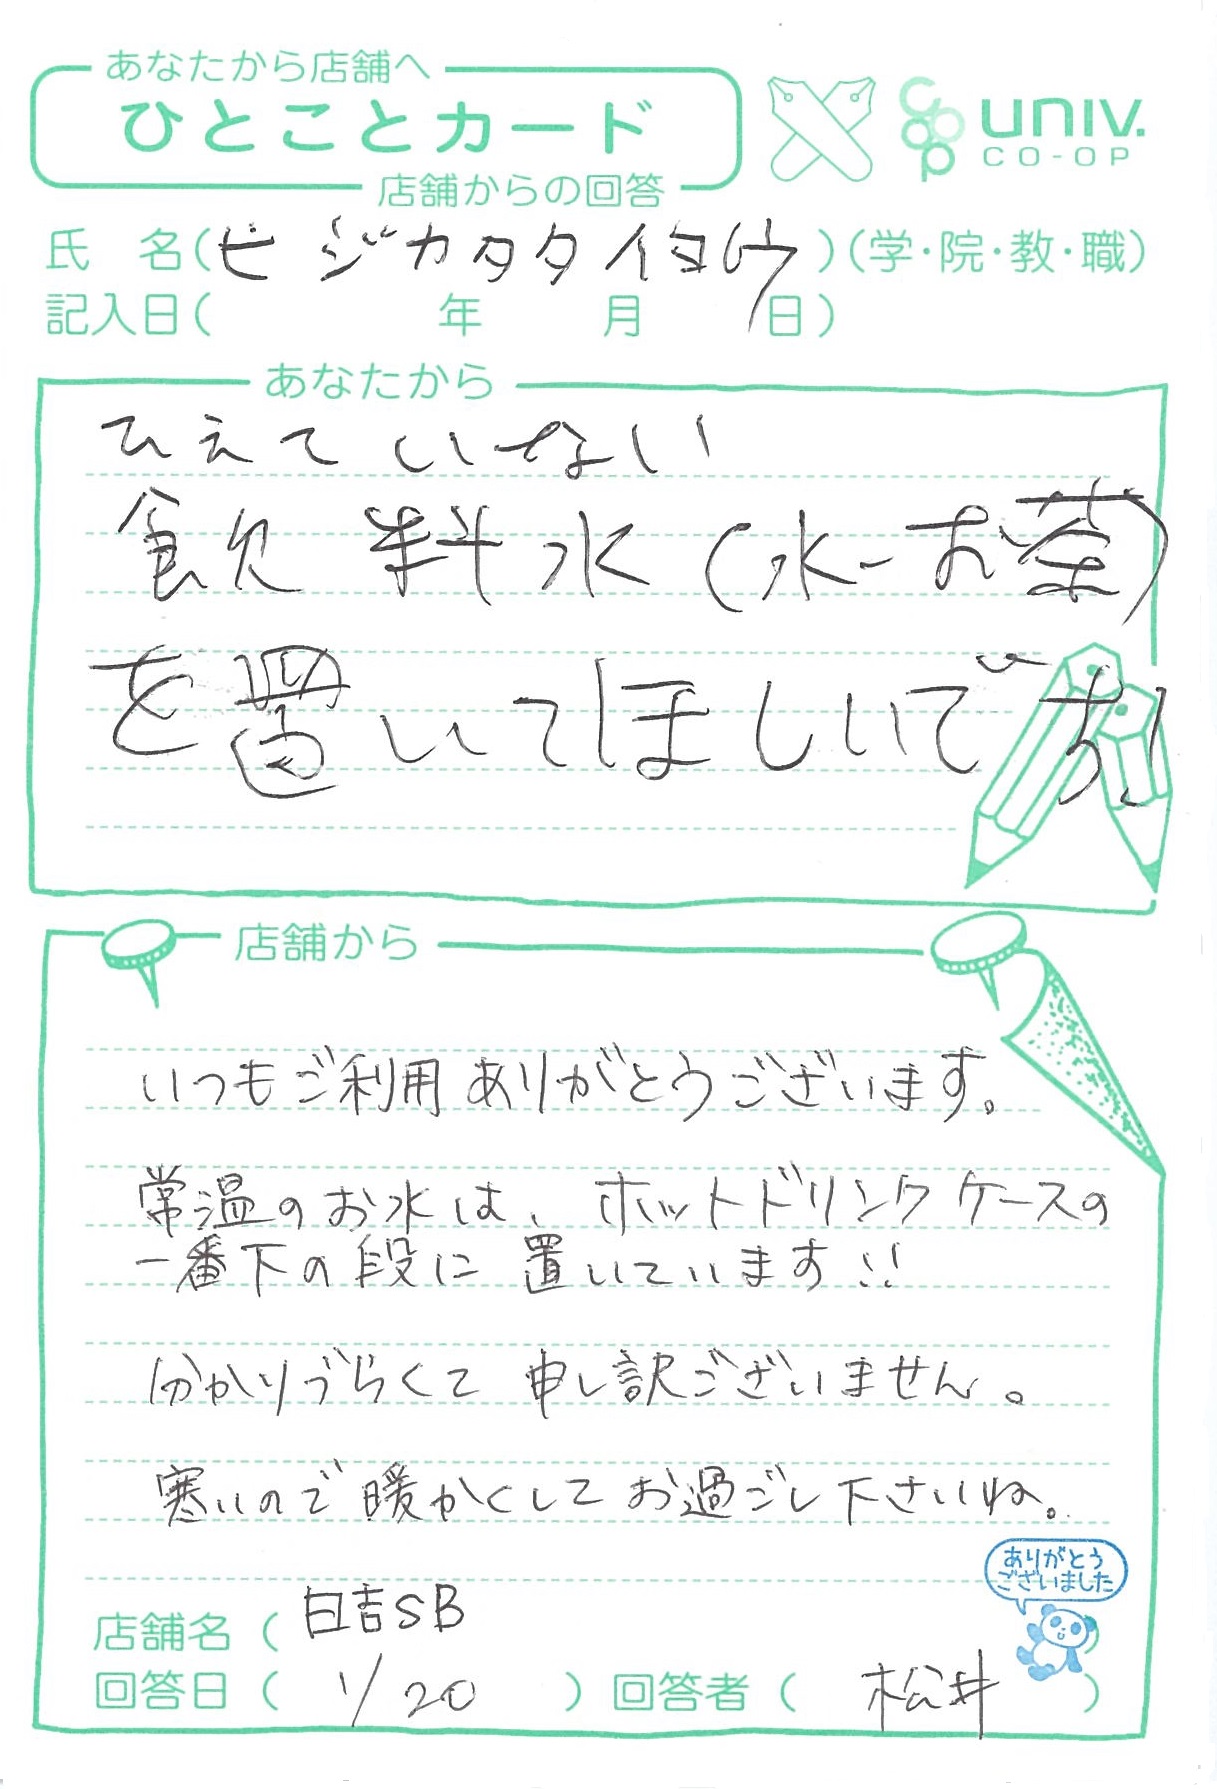 あなたから店舗へ
ひとことカード
店舗からの回答
univ.
CO-OP
氏 名(ヒジカタタイヨウ)(学・院・教・職)
記入日( 年 月 日)
あなたから
ひえていない
飲料水(水-お茶)
を置いてほしいです
店舗から
いつもご利用ありがとうございます。
常温のお水は、ホットドリンクケースの
一番下の段に置いています!!
分かりづらくて申し訳ございません。
寒いので暖かくしてお過ごし下さいね。
ありがとう
ございました
店舗名( 日吉SB )
回答日( 1/20 )回答者( 松井 )